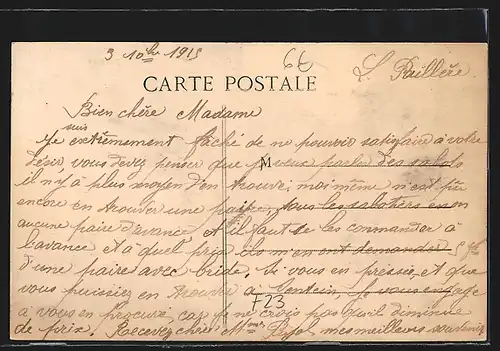 3 10bre 1915
6E
L. Paillère.
CARTE POSTALE
Bien chère Madame
suis
Je extrêmement faché de ne pouvoir satisfaire à votre
désir vous devez penser que je veux parler des sabots
M
il n'y à plus moyen d'en trouver; moi même n'est pu
encore en trouver une paire, tous les sabotiers en on
aucune paire d'avance, et il faut se les commander à
l'avance, et à quell prix ils m'en ont demander 5
d'une paire avec bride. Si vous en pressée et que
vous puissiez en trouver à je vous engage
F23
à vous en procure, car je ne crois pas qu'il diminue
de prix. Recevez chère Mme mes meilleurs souvenirs